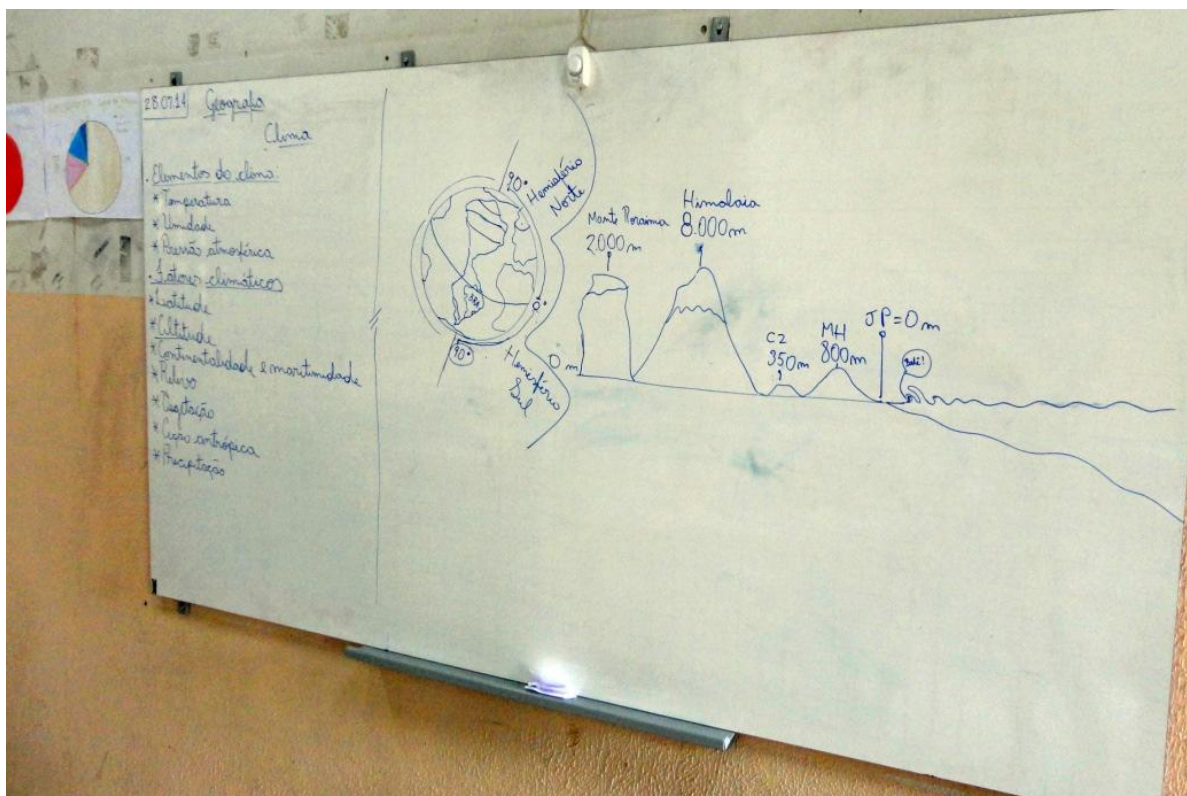 28.07.14 Geografia
Clima
. Elementos do clima:
* Temperatura
* Umidade
* Pressão atmosférica
. Fatores climáticos
* Latitude
* Altitude
* Continentalidade e maritimidade
* Relevo
* Vegetação
* Ação antrópica
* Precipitação
90°
Hemisfério
Norte
0°
90°
Hemisfério
Sul
Monte Roraima
2.000m
Himalaia
8.000m
0 m
CZ
350m
MH
800m
JP=0m